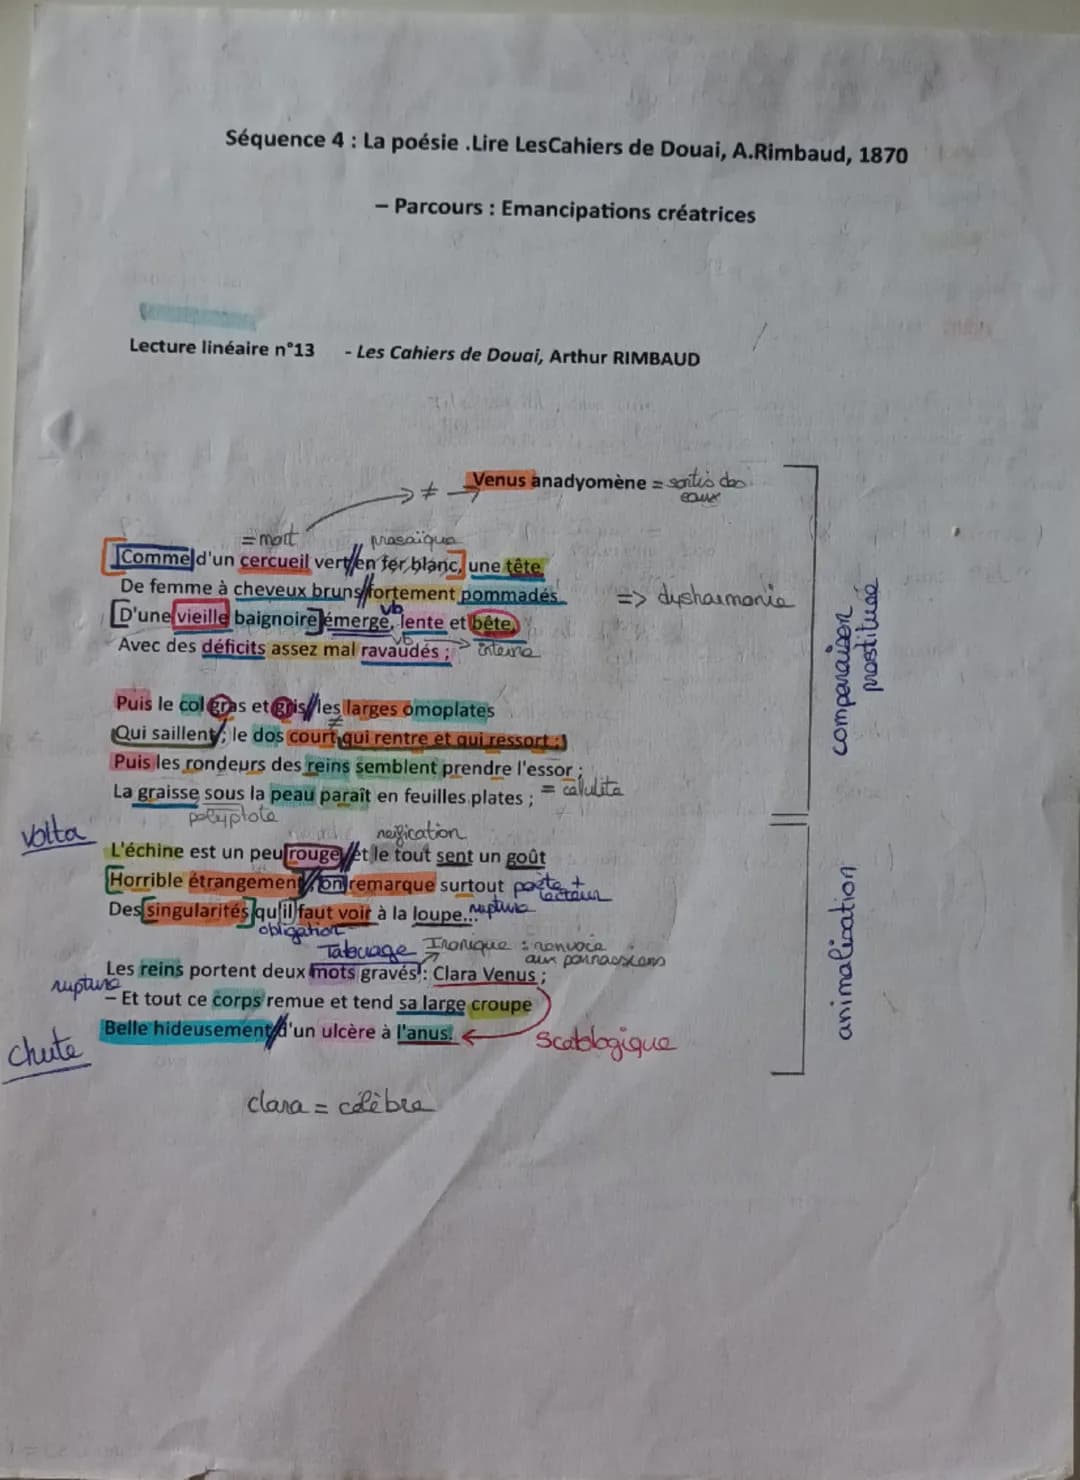 Séquence 4 : La poésie .Lire LesCahiers de Douai, A.Rimbaud, 1870
– Parcours : Emancipations créatrices
Lecture linéaire n°13 - Les Cahiers de Douai, Arthur RIMBAUD
≠ Venus anadyomène = sortis des
eaux
= mort prosaïque
Comme d'un cercueil vert//en fer blanc, une tête
De femme à cheveux bruns//fortement pommadés
=> dysharmonie
vb
D'une vieille baignoire émerge, lente et bête,
vb
Avec des déficits assez mal ravaudés ; -> interne
Puis le col gras et gris//les larges omoplates
≠
Qui saillent/; le dos court qui rentre et qui ressort ;
Puis les rondeurs des reins semblent prendre l'essor ;
La graisse sous la peau paraît en feuilles plates ; = cellulite
polyptote
volta
réification
L'échine est un peu rouge,//et le tout sent un goût
Horrible étrangement//, on remarque surtout poète +
lecteur
Des singularités qu'il faut voir à la loupe... rupture
obligation
Tatouage Ironique : renvoie
aux parnassiens
Les reins portent deux mots gravés : Clara Venus ;
rupture
– Et tout ce corps remue et tend sa large croupe
Belle hideusement//d'un ulcère à l'anus.
Scatologique
chute
clara = célèbre
comparaison
prostituée
animalisation